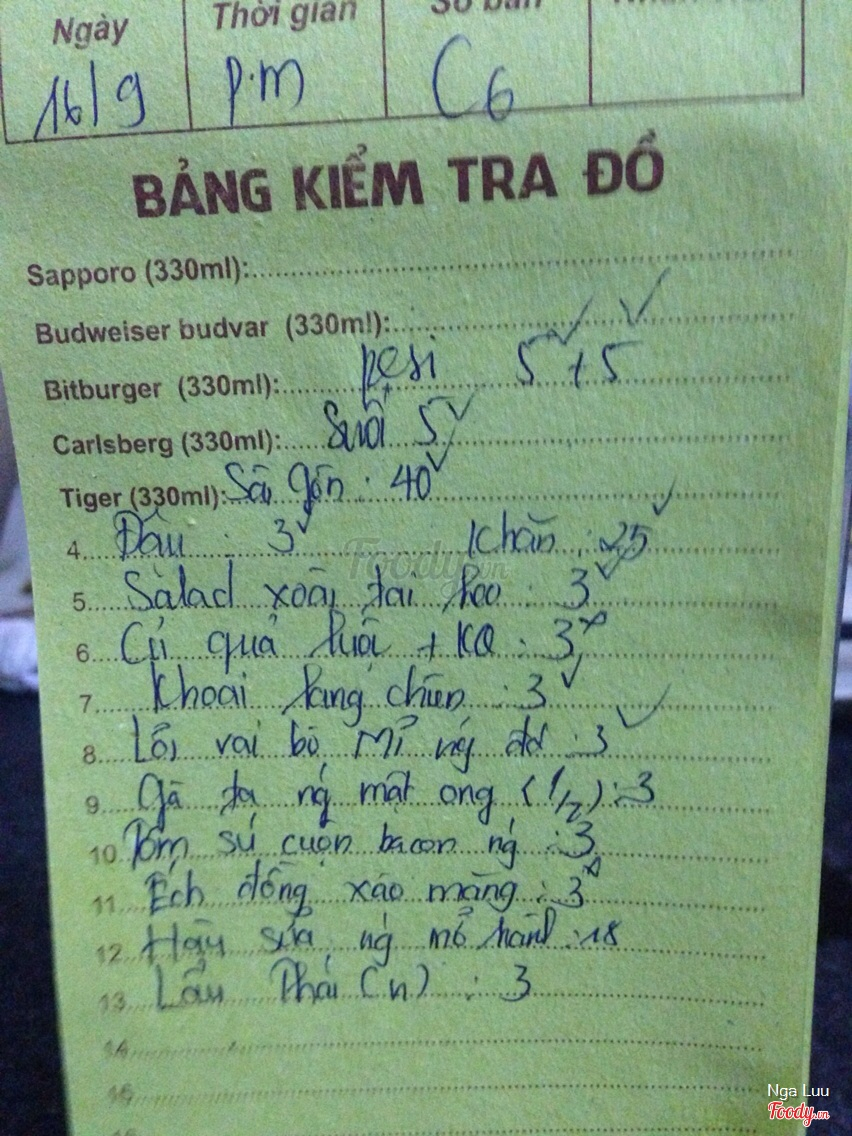 Ngày Thời gian Số bàn
16/9 P.M C6
BẢNG KIỂM TRA ĐỒ
Sapporo (330ml):
Budweiser budvar (330ml):
Bitburger (330ml): pesi 5 + 5
Carlsberg (330ml): Suối 5
Tiger (330ml): Sài Gòn : 40
4. Đậu : 3 Khăn : 25
5. Salad xoài tai heo : 3
6. Củ quả luộc + KQ : 3
7. Khoai lang chiên : 3
8. Lõi vai bò Mĩ ng đá : 3
9. Gà ta ng mật ong (1/2) : 3
10 Tôm sú cuộn bacon ng : 3
11 Ếch đồng xáo măng : 3
12 Hàu sữa ng mỡ hành : 18
13 Lẩu Thái (n) : 3
14
15
Foody.vn
Nga Luu
Foody.vn